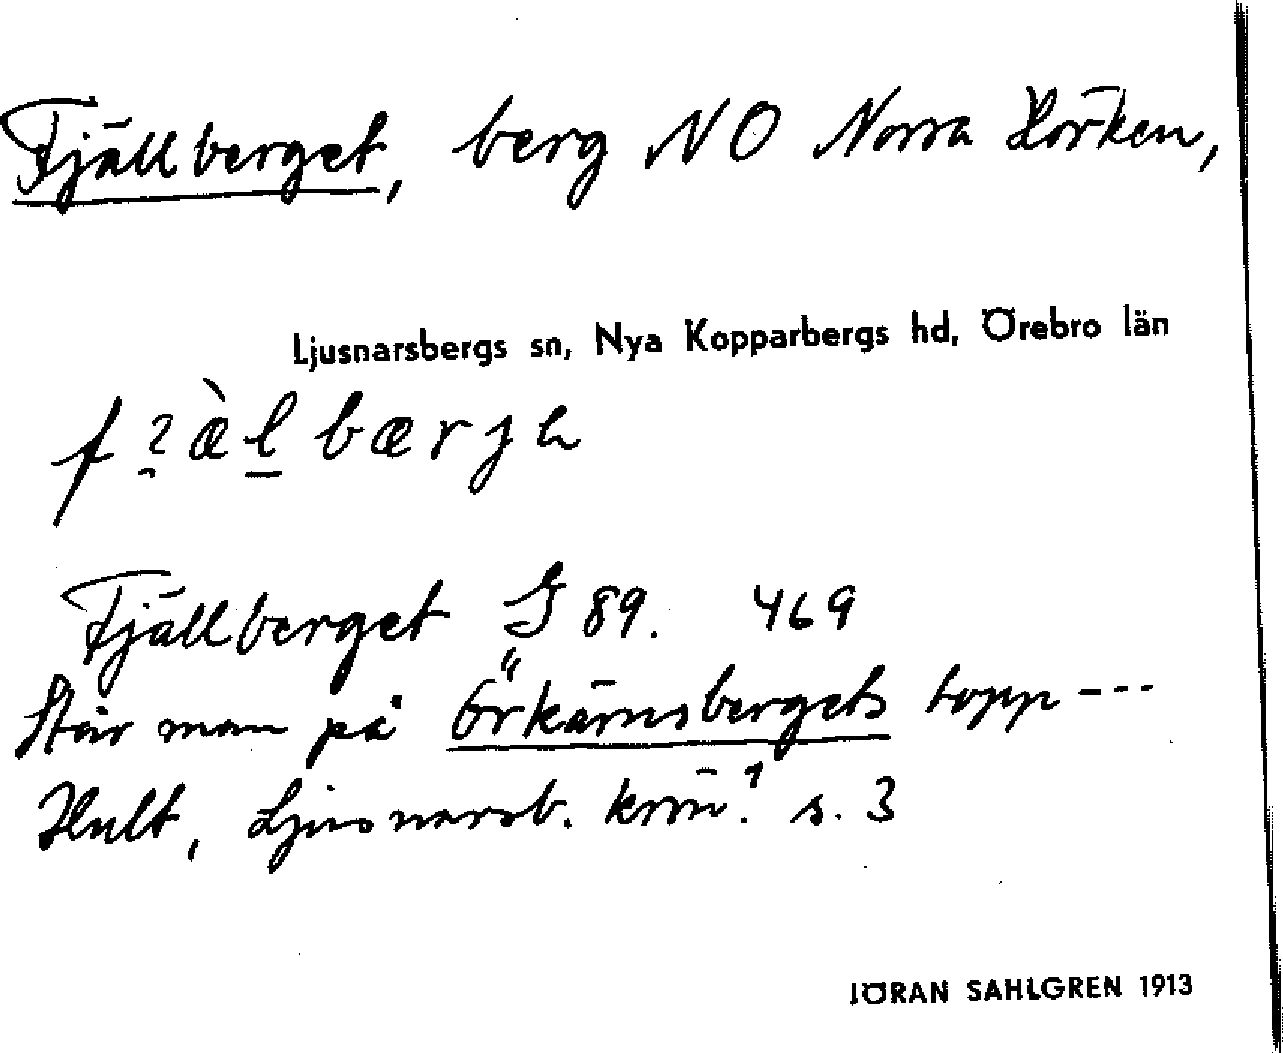 Fjällberget, berg NO Norra Hörken,
Ljusnarsbergs sn, Nya Kopparbergs hd, Örebro län
Fjällberget G 89. 469
Står man på Örkärnsbergets topp ---
Hult, Ljusnarsb. krön.¹ s. 3
JÖRAN SAHLGREN 1913